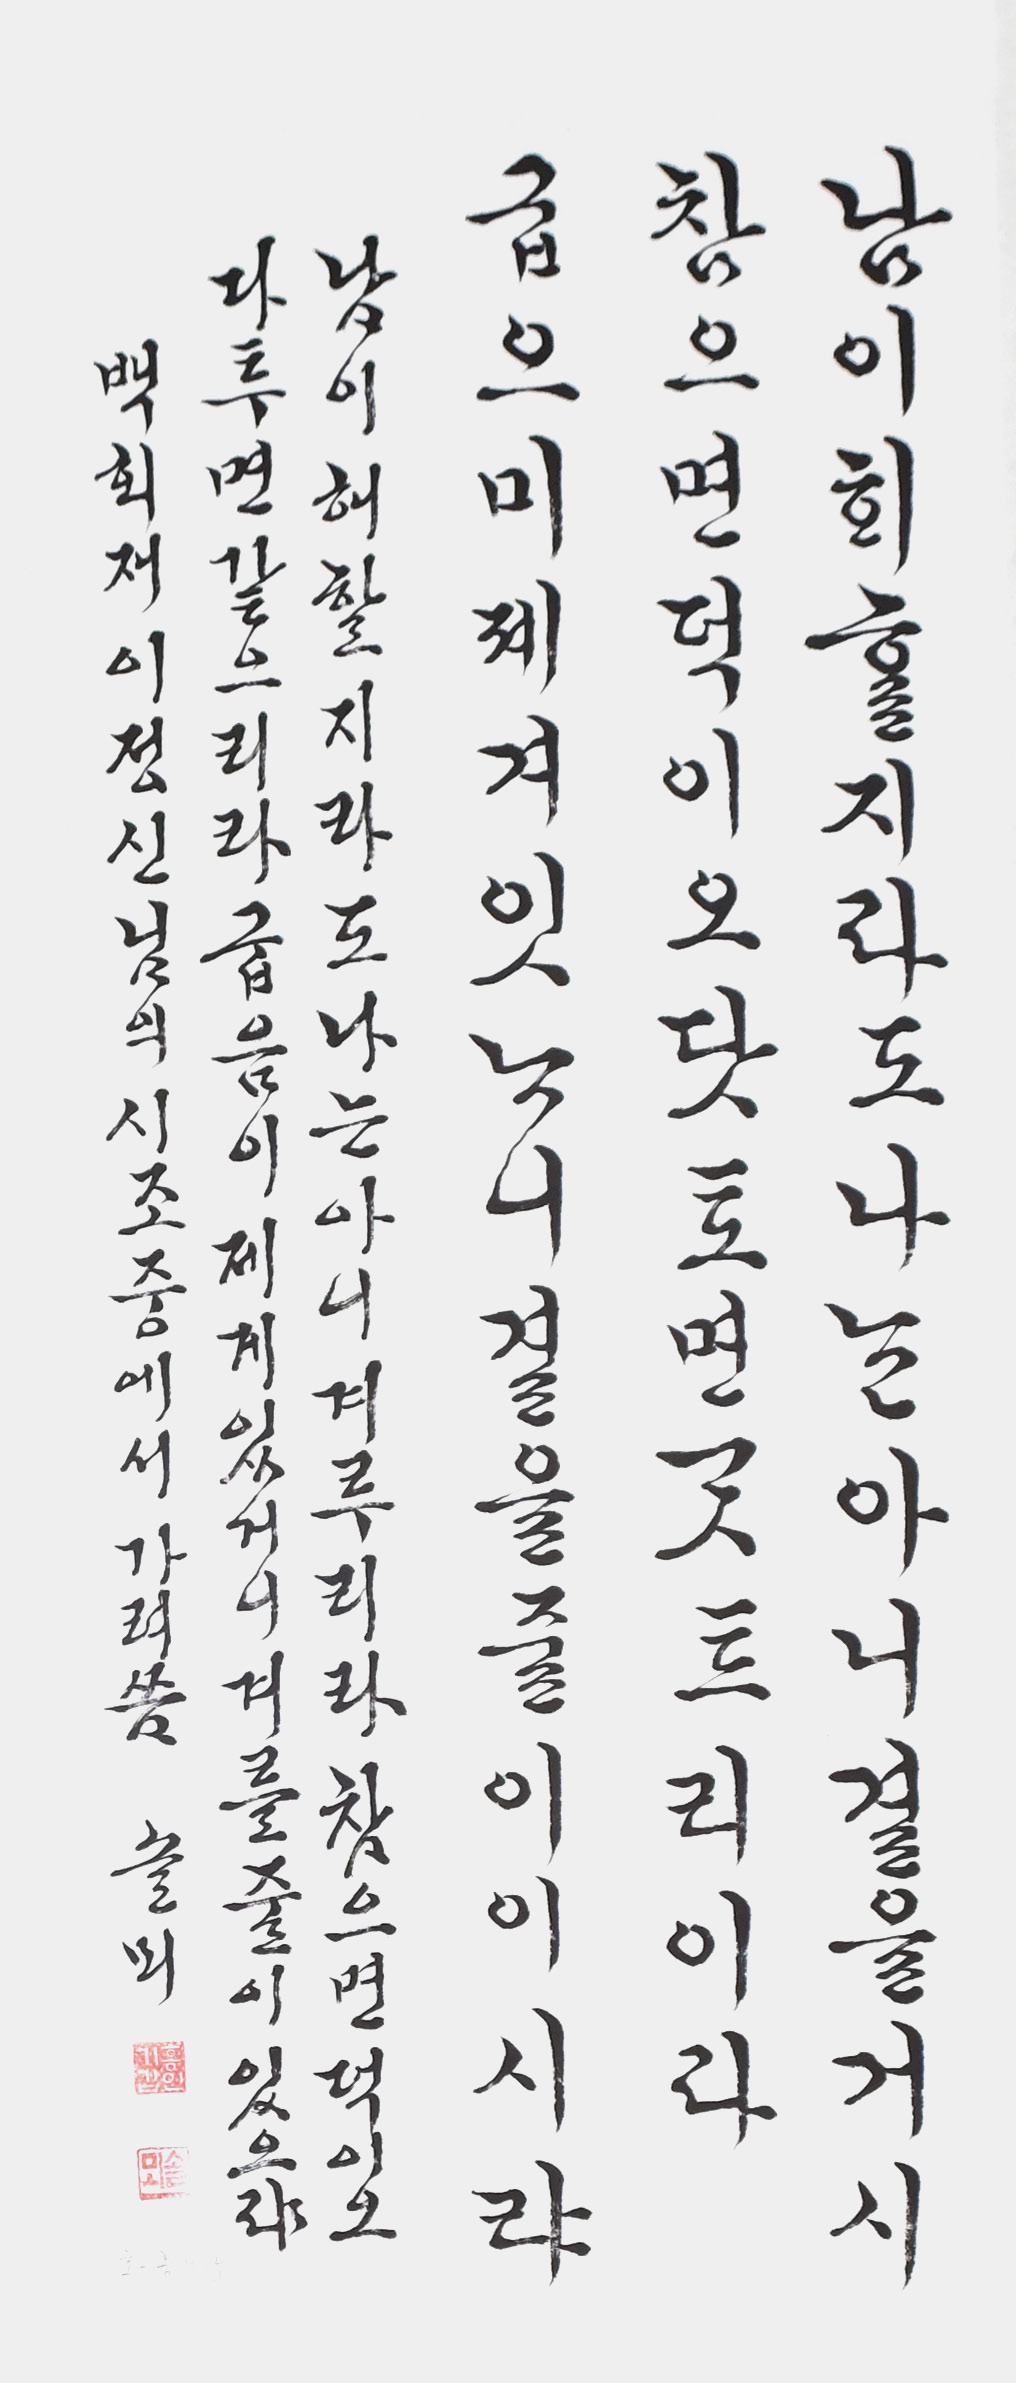 남이ᄒᆡᄒᆞᆯ지라도나ᄂᆞᆫ아니결을거시
참으면덕이오닷토면ᄀᆞᆺᄐᆞ리이라
굽으미제겨잇ᄂᆞ니결을줄이이시랴
남이 해할지라도 나는 아니 겨루리라 참으면 덕이오
다투면 같으리라 굽음이 제게 있거니 겨룰 줄이 있으랴
백회재 이정신님의 시조 중에서 가려 씀 솔뫼
솔뫼